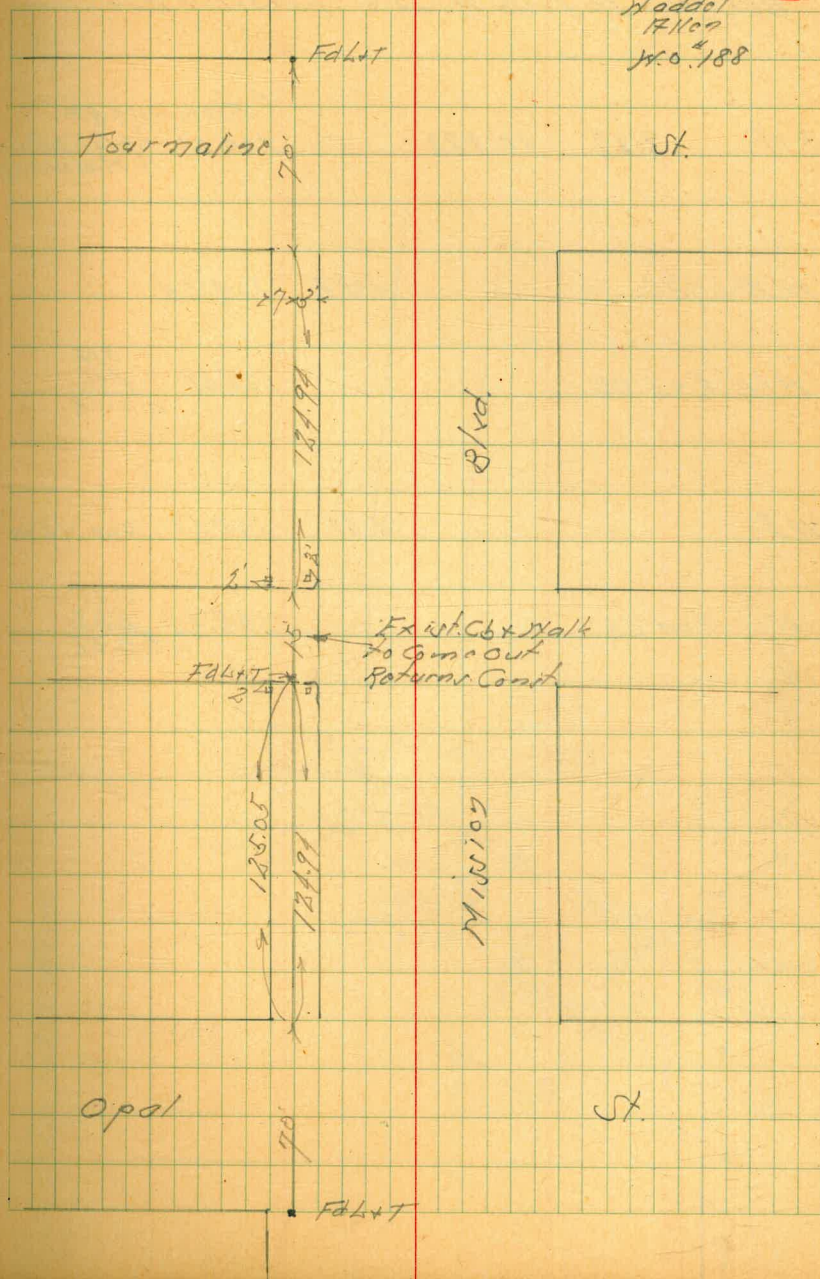 Waddel
Allen
W.O. #188
Fd L+T
Tourmaline
St.
70'
7
3'
124.94
Blvd.
2'
3'
15'
Exist. Cb & Walk
to Come Out
Returns Const.
Fd L+T
2'
125.05
124.94
Mission
Opal
St.
70'
Fd L+T